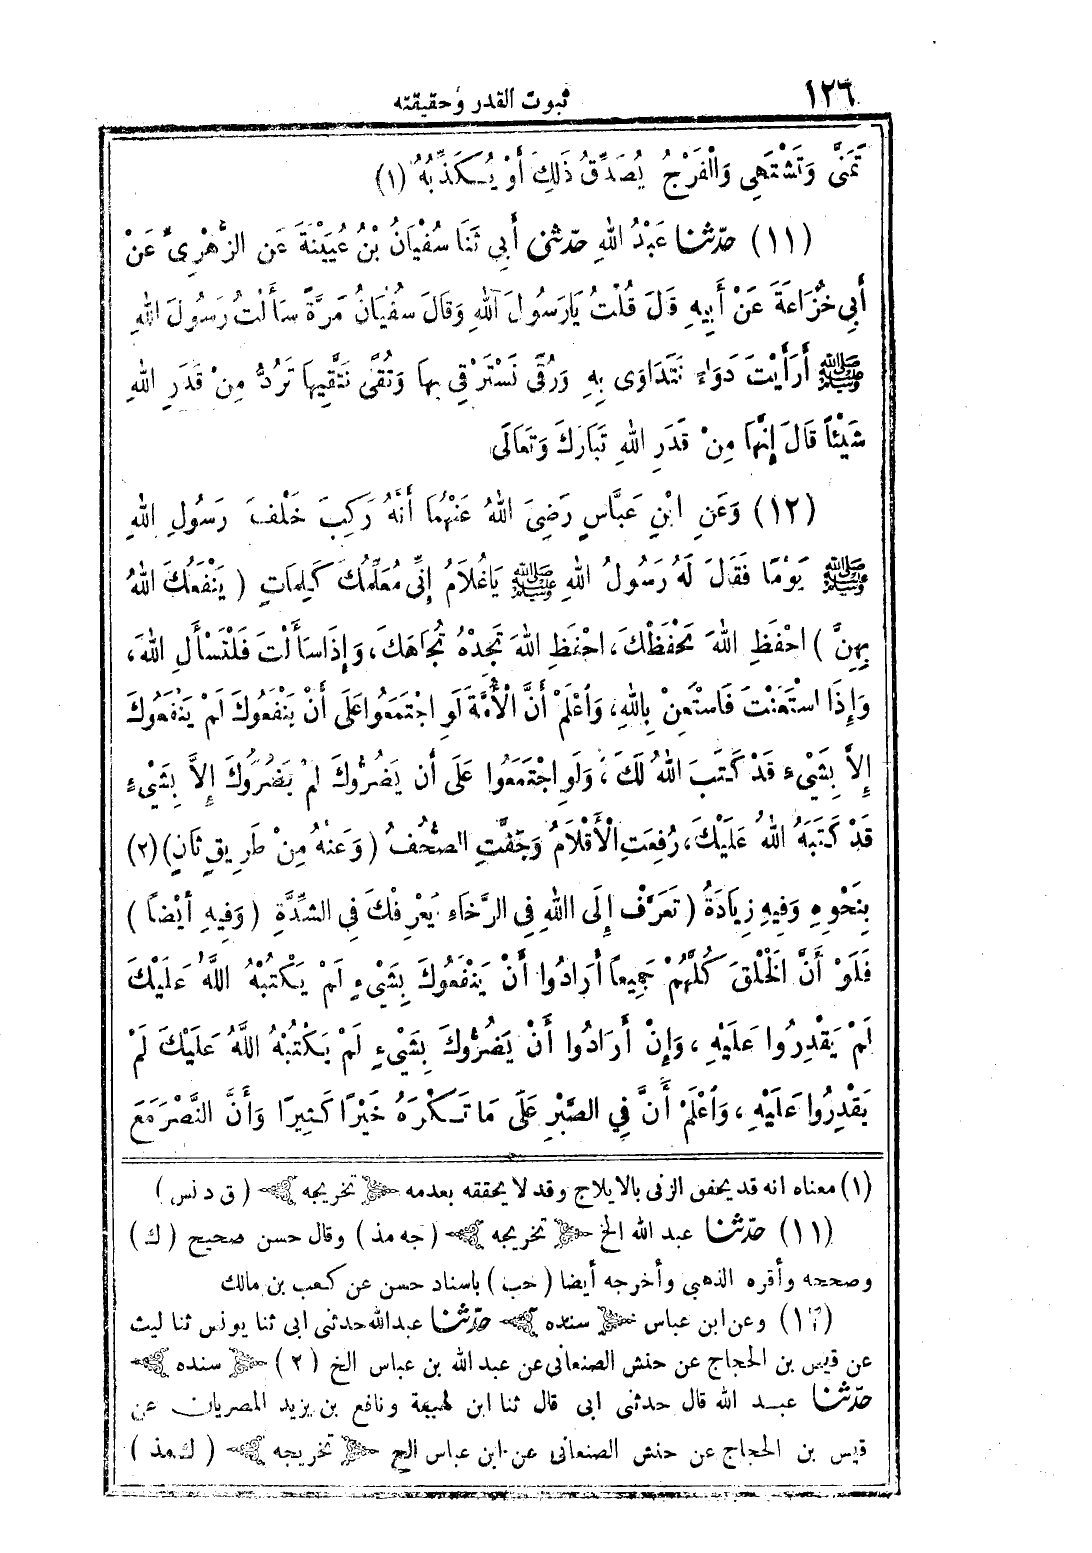 ١٢٦
ثبوت القدر وحقيقته
تَمَنَّى وَتَشْتَهِي وَالْفَرْجُ يُصَدِّقُ ذَلِكَ أَوْ يُكَذِّبُهُ (١)
(١١) حدّثنا عَبْدُ اللهِ حدّثنى أَبِي ثَنَا سُفْيَانُ بْنُ عُيَيْنَةَ عَنِ الزُّهْرِىِّ عَنْ
أَبِي خُزَاعَةَ عَنْ أَبِيهِ قَالَ قُلْتُ يَارَسُولَ اللهِ وَقَالَ سُفْيَانُ مَرَّةً سَأَلْتُ رَسُولَ اللهِ
ﷺ أَرَأَيْتَ دَوَاءً نَتَدَاوَى بِهِ وَرُقًى نَسْتَرْقِي بِهَا وَتُقًى نَتَّقِيهَا تَرُدُّ مِنْ قَدَرِ اللهِ
شَيْئًا قَالَ إِنَّهَا مِنْ قَدَرِ اللهِ تَبَارَكَ وَتَعَالَى
(١٢) وَعَنِ ابْنِ عَبَّاسٍ رَضِيَ اللهُ عَنْهُمَا أَنَّهُ رَكِبَ خَلْفَ رَسُولِ اللهِ
ﷺ يَوْمًا فَقَالَ لَهُ رَسُولُ اللهِ ﷺ يَاغُلَامُ إِنِّي مُعَلِّمُكَ كَلِمَاتٍ ( يَنْفَعُكَ اللهُ
بِهِنَّ ) احْفَظِ اللهَ يَحْفَظْكَ، احْفَظِ اللهَ تَجِدْهُ تُجَاهَكَ، وَإِذَا سَأَلْتَ فَلْتَسْأَلِ اللهَ،
وَإِذَا اسْتَعَنْتَ فَاسْتَعِنْ بِاللهِ، وَاعْلَمْ أَنَّ الْأُمَّةَ لَوِ اجْتَمَعُوا عَلَى أَنْ يَنْفَعُوكَ لَمْ يَنْفَعُوكَ
إِلاَّ بِشَيْءٍ قَدْ كَتَبَ اللهُ لَكَ، وَلَوِ اجْتَمَعُوا عَلَى أَنْ يَضُرُّوكَ لَمْ يَضُرُّوكَ إِلاَّ بِشَيْءٍ
قَدْ كَتَبَهُ اللهُ عَلَيْكَ، رُفِعَتِ الْأَقْلَامُ وَجَفَّتِ الصُّحُفُ ( وَعَنْهُ مِنْ طَرِيقٍ ثَانٍ ) (٢)
بِنَحْوِهِ وَفِيهِ زِيَادَةُ ( تَعَرَّفْ إِلَى اللهِ فِي الرَّخَاءِ يَعْرِفْكَ فِي الشِّدَّةِ ( وَفِيهِ أَيْضًا )
فَلَوْ أَنَّ الْخَلْقَ كُلَّهُمْ جَمِيعًا أَرَادُوا أَنْ يَنْفَعُوكَ بِشَيْءٍ لَمْ يَكْتُبْهُ اللهُ عَلَيْكَ
لَمْ يَقْدِرُوا عَلَيْهِ، وَإِنْ أَرَادُوا أَنْ يَضُرُّوكَ بِشَيْءٍ لَمْ يَكْتُبْهُ اللهُ عَلَيْكَ لَمْ
يَقْدِرُوا عَلَيْهِ، وَاعْلَمْ أَنَّ فِي الصَّبْرِ عَلَى مَا تَكْرَهُ خَيْرًا كَثِيرًا وَأَنَّ النَّصْرَ مَعَ
(١) معناه انه قد يحقق الزنى بالايلاج وقد لا يحققه بعدمه ﴿ تخريجه ﴾ ( ق د نس )
(١١) حدّثنا عبد الله الخ ﴿ تخريجه ﴾ ( جه مذ ) وقال حسن صحيح ( ك )
وصححه وأقره الذهبى وأخرجه أيضا ( حب ) باسناد حسن عن كعب بن مالك
(١٢) وعن ابن عباس ﴿ سنده ﴾ حدّثنا عبدالله حدثنى ابى ثنا يونس ثنا ليث
عن قيس بن الحجاج عن حنش الصنعانى عن عبد الله بن عباس الخ (٢) ﴿ سنده ﴾
حدّثنا عبد الله قال حدثنى ابى قال ثنا ابن لهيعة ونافع بن يزيد المصريان عن
قيس بن الحجاج عن حنش الصنعانى عن ابن عباس الخ ﴿ تخريجه ﴾ ( ك مذ )